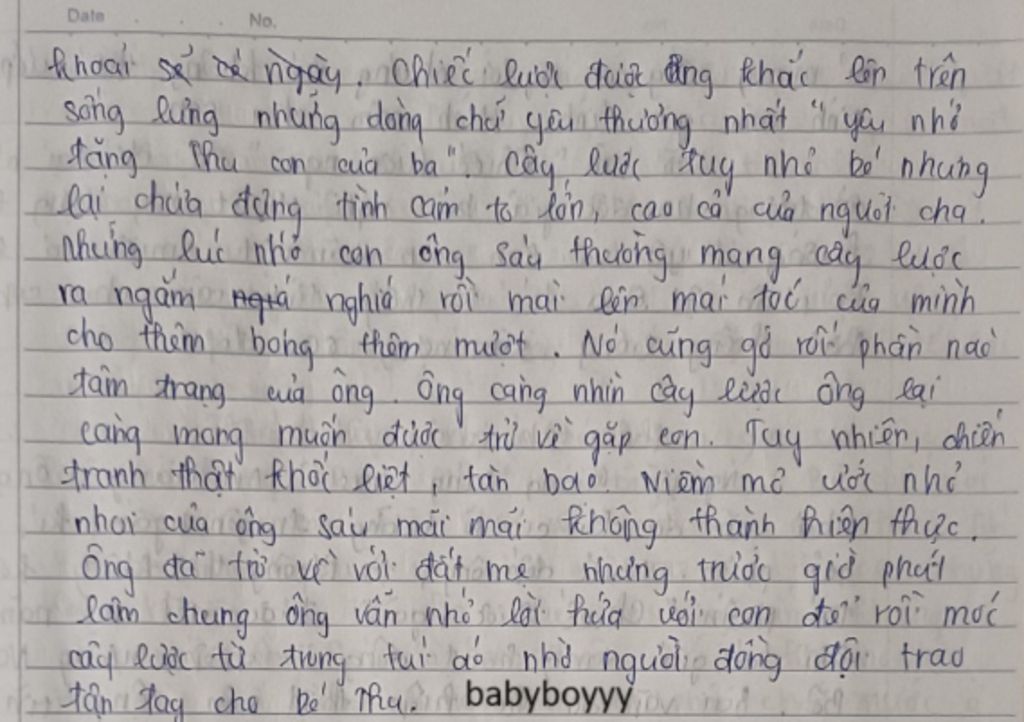 Date No.
khoái sẻ cả ngày. Chiếc lược được ông khắc lên trên
sống lưng những dòng chữ yêu thương nhất "yêu nhớ
tặng Thu con của ba". Cây lược tuy nhỏ bé nhưng
lại chứa đựng tình cảm to lớn, cao cả của người cha.
Những lúc nhớ con ông Sáu thường mang cây lược
ra ngắm nghía rồi mài lên mái tóc của mình
cho thêm bóng thêm mượt. Nó cũng gỡ rối phần nào
tâm trạng của ông. Ông càng nhìn cây lược ông lại
càng mong muốn được trở về gặp con. Tuy nhiên, chiến
tranh thật khốc liệt, tàn bạo. Niềm mơ ước nhỏ
nhoi của ông Sáu mãi mãi không thành hiện thực.
Ông đã trở về với đất mẹ nhưng trước giờ phút
lâm chung ông vẫn nhớ lời hứa với con để rồi móc
cây lược từ trong túi áo nhờ người đồng đội trao
tận tay cho bé Thu. babyboyyy